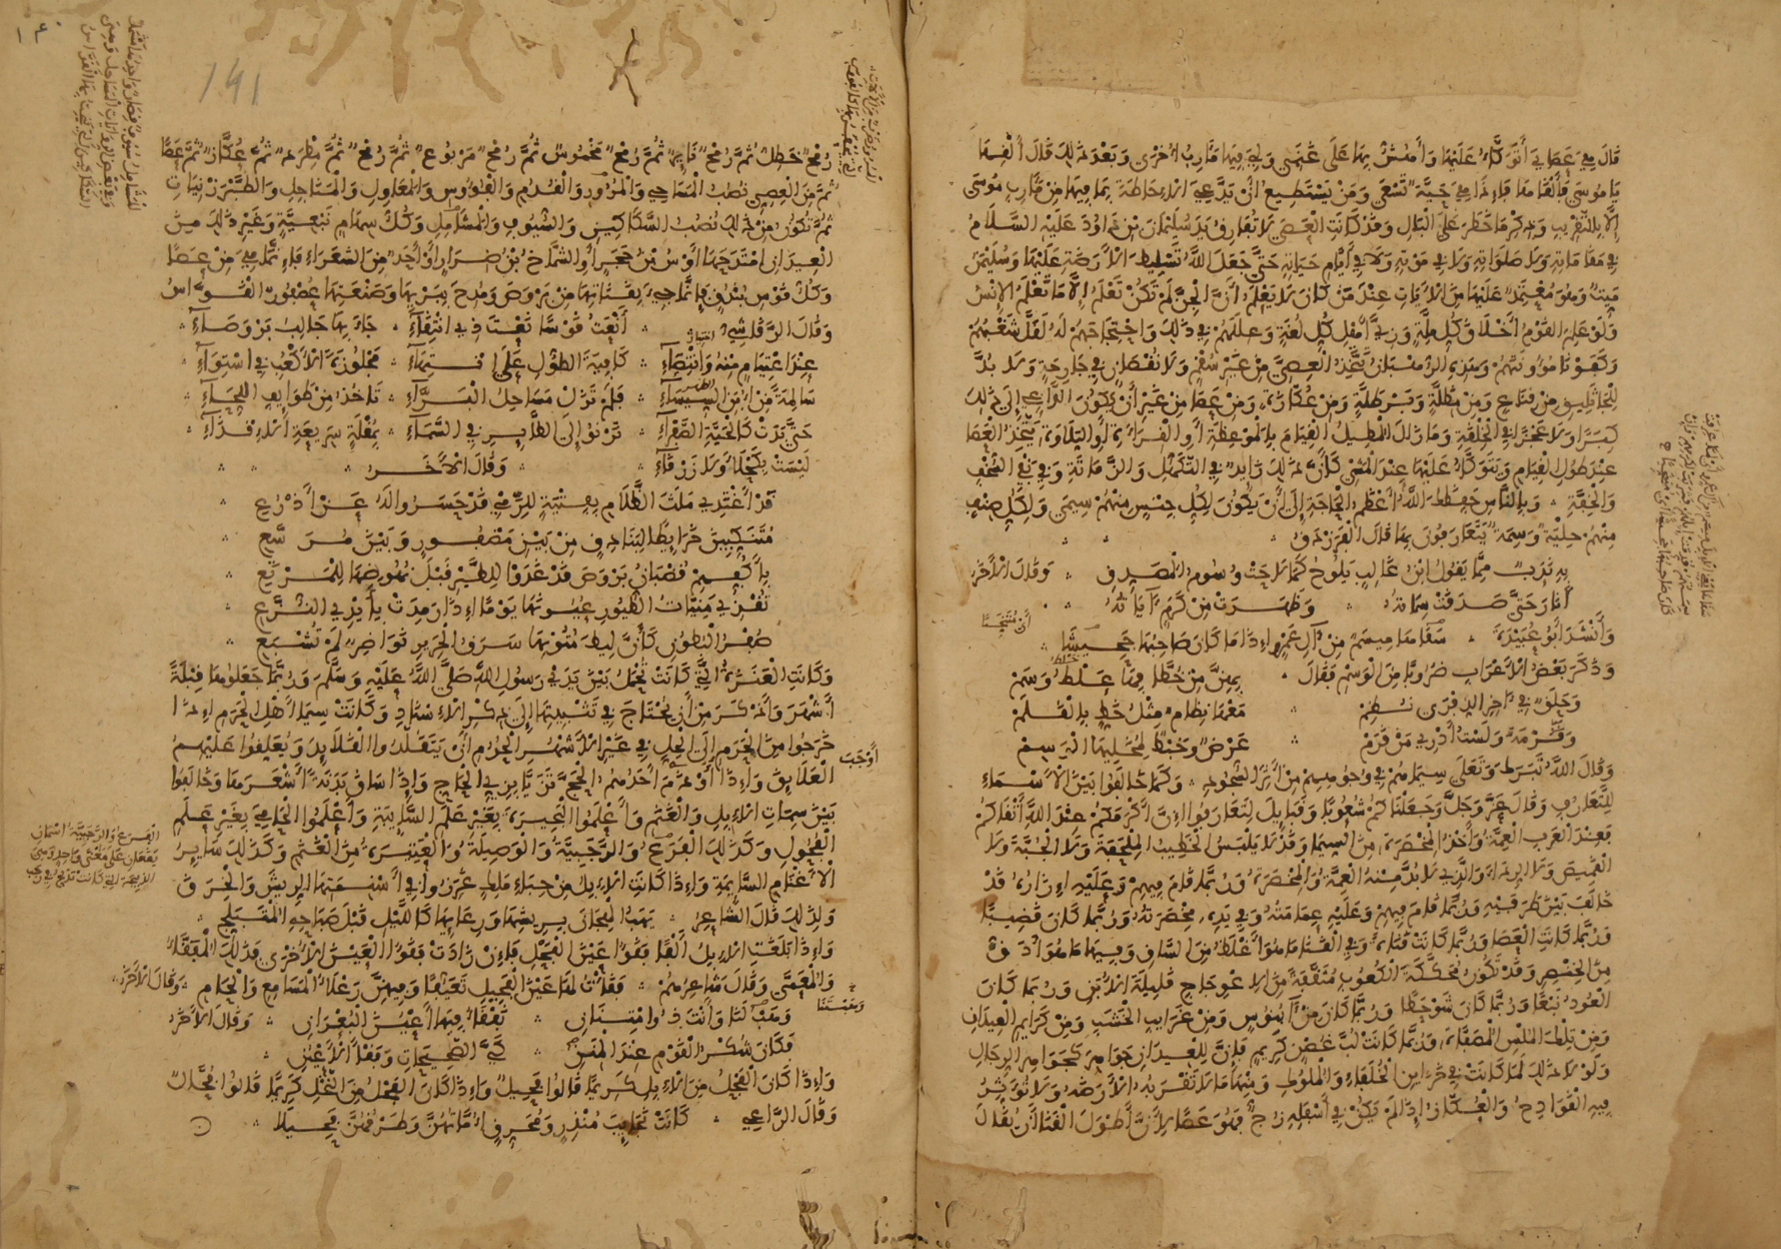 قَالَ هِيَ عَصَايَ أَتَوَكَّأُ عَلَيْهَا وَأَهُشُّ بِهَا عَلَى غَنَمِي وَلِيَ فِيهَا مَآرِبُ أُخْرَى وَبَعْدَ ذَلِكَ قَالَ أَلْقِهَا
يَا مُوسَى فَأَلْقَاهَا فَإِذَا هِيَ حَيَّةٌ تَسْعَى وَمَنْ يَسْتَطِيعُ أَنْ يَدَّعِيَ الْإِحَاطَةَ بِمَا فِيهَا مِنْ مَآرِبِ مُوسَى
إِلَّا بِالتَّقْرِيبِ وَذِكْرِ مَا خَطَرَ عَلَى الْبَالِ وَقَدْ كَانَتِ الْعَصَى لَا تُفَارِقُ يَدَ سُلَيْمَانَ بْنِ دَاوُدَ عَلَيْهِ السَّلَامُ
فِي مَقَامَاتِهِ وَلَا صَلَوَاتِهِ وَلَا فِي مَوْتِهِ وَلَا فِي أَيَّامِ حَيَاتِهِ حَتَّى جَعَلَ اللَّهُ تَسْلِيطَ الْأَرَضَةِ عَلَيْهَا وَسُلَيْمَنُ
مَيِّتٌ وَهُوَ مُعْتَمِدٌ عَلَيْهَا مِنَ الْآيَاتِ عِنْدَ مَنْ كَانَ لَا يَعْلَمُ أَنَّ الْجِنَّ لَمْ تَكُنْ تَعْلَمُ إِلَّا مَا تَعْلَمُ الْإِنْسُ
وَلَوْ عَلِمَ الْقَوْمُ أَخْلَاقَ كُلِّ مِلَّةٍ وَزِيَّ أَهْلِ كُلِّ لُغَةٍ وَعِلَلَهُمْ فِي ذَلِكَ وَاحْتِجَاجَهُمْ لَهُ لَقَلَّ شَغَبُهُمْ
وَكَفَوْنَا مَؤُونَتَهُمْ وَهَذِهِ الرُّهْبَانُ تَتَّخِذُ الْعِصِيَّ مِنْ غَيْرِ سُقْمٍ وَلَا نُقْصَانٍ فِي جَارِحَةٍ وَلَا بُدَّ
لِلْجَاثَلِيقِ مِنْ قِنَاعٍ وَمِنْ مِظَلَّةٍ وَبَرْطُلَّةٍ وَمِنْ عُكَّازَةٍ وَمِنْ عَصًا مِنْ غَيْرِ أَنْ يَكُونَ الدَّاعِي إِلَى ذَلِكَ
كِبَرًا وَلَا عَجْزًا فِي الْخِلْقَةِ وَمَا زَالَ الْمُطِيلُ الْقِيَامَ بِالْمَوْعِظَةِ أَوِ الْقِرَاءَةِ أَوِ التِّلَاوَةِ يَتَّخِذُ الْعَصَا
عِنْدَ طُولِ الْقِيَامِ وَيَتَوَكَّأُ عَلَيْهَا عِنْدَ الْمَشْيِ كَأَنَّ ذَلِكَ زَايِدٌ فِي التَّكَهُّلِ وَالزَّمَاتَةِ وَفِي نَفْيِ السُّخْفِ
وَالْخِفَّةِ وَبِالنَّاسِ حَفِظَكَ اللَّهُ أَعْظَمُ الْحَاجَةِ إِلَى أَنْ يَكُونَ لِكُلِّ جِنْسٍ مِنْهُمْ سِيمَى وَلِكُلِّ صِنْفٍ
مِنْهُمْ حِلْيَةٌ وَسِمَةٌ يَتَعَارَفُونَ بِهَا قَالَ الْفَرَزْدَقُ
بِهِ نَدَبٌ مِمَّا يَقُولُ ابْنُ غَالِبٍ يَلُوحُ كَمَا لَاحَتْ وُسُومُ الْمُصَدِّقِ وَقَالَ الْآخَرُ
أَنَارَ حَتَّى صَدَقَتْ سِمَاتُهُ وَظَهَرَتْ مِنْ كَرَمٍ آيَاتُهُ
وَأَنْشَدَ أَبُو عُبَيْدَةَ سَقَاهَا مِيسَمٌ مِنْ آلِ عَمْرٍو إِذَا مَا كَانَ صَاحِبُهَا جَحِيشَا
وَذَكَرَ بَعْضُ الْأَعْرَابِ ضُرُوبًا مِنَ الْوَسْمِ فَقَالَ بِهِنَّ مِنْ خَطَّافِنَا خَبْطٌ وَسَمْ
وَحَلَقٌ فِي آخِرِ الذِّفْرَى نُظِمْ مَعْهَا نِظَامٌ مِثْلُ خَطٍّ بِالْقَلَمْ
وَقُرْمَةٌ وَلَسْتُ أَدْرِي مَنْ قَرَمْ عَرْضٌ وَخَبْطٌ لِلْمُحَلِّيهَا الْوَسِمْ
وَقَالَ اللَّهُ تَبَارَكَ وَتَعَالَى سِيمَاهُمْ فِي وُجُوهِهِمْ مِنْ أَثَرِ السُّجُودِ وَكَمَا خَالَفُوا بَيْنَ الْأَسْمَاءِ
لِلتَّعَارُفِ وَقَالَ عَزَّ وَجَلَّ وَجَعَلْنَاكُمْ شُعُوبًا وَقَبَائِلَ لِتَعَارَفُوا إِنَّ أَكْرَمَكُمْ عِنْدَ اللَّهِ أَتْقَاكُمْ
فَعِنْدَ الْعَرَبِ الْعِمَّةُ وَأَخْذُ الْمِخْصَرَةِ مِنَ السِّيمَا وَقَدْ لَا يَلْبَسُ الْخَطِيبُ الْمِلْحَفَةَ وَلَا الْجُبَّةَ وَلَا
الْقَمِيصَ وَلَا الرِّدَاءَ وَالَّذِي لَا بُدَّ مِنْهُ الْعِمَّةُ وَالْمِخْصَرَةُ وَرُبَّمَا قَامَ فِيهِمْ وَعَلَيْهِ إِزَارُهُ قَدْ
خَالَفَ بَيْنَ طَرَفَيْهِ وَرُبَّمَا قَامَ فِيهِمْ وَعَلَيْهِ عِمَامَتُهُ وَفِي يَدِهِ مِخْصَرَتُهُ وَرُبَّمَا كَانَ قَضِيبًا
وَرُبَّمَا كَانَتِ الْعَصَا وَرُبَّمَا كَانَتْ قَنَاةً وَفِي الْقَنَا مَا هُوَ أَغْلَظُ مِنَ السَّاقِ وَفِيهَا مَا هُوَ أَدَقُّ
مِنَ الْخِنْصَرِ وَقَدْ تَكُونُ مُحَكَّكَةَ الْكُعُوبِ مُثَقَّفَةً مِنَ الِاعْوِجَاجِ قَلِيلَةَ الْأُبَنِ وَرُبَّمَا كَانَ
الْعُودُ نَبْعًا وَرُبَّمَا كَانَ شَوْحَطًا وَرُبَّمَا كَانَ مِنْ آبُنُوسٍ وَمِنْ غَرَايِبِ الْخَشَبِ وَمِنْ كَرَايِمِ الْعِيدَانِ
وَمِنْ تِلْكَ الْمُلْسِ الْمُصَفَّاةِ وَرُبَّمَا كَانَتْ لُبَّ غُصْنٍ كَرِيمٍ فَإِنَّ لِلْعِيدَانِ جَوَاهِرَ كَجَوَاهِرِ الرِّجَالِ
وَلَوْلَا ذَلِكَ لَمَا كَانَتْ فِي خَزَائِنِ الْخُلَفَاءِ وَالْمُلُوكِ وَمِنْهَا مَا لَا تَقْرَبُهُ الْأَرَضَةُ وَلَا تُؤَثِّرُ
فِيهِ الْقَوَادِحُ وَالْعُكَّازُ إِذَا لَمْ يَكُنْ فِي أَسْفَلِهِ زُجٌّ فَهُوَ عَصًا لِأَنَّ أَطْوَلَ الْقَنَا أَنْ يُقَالَ
١٤٠
141
رُمْحٌ خَطِلٌ ثُمَّ رُمْحٌ بَائِنٌ ثُمَّ رُمْحٌ مَخْمُوسٌ ثُمَّ رُمْحٌ مَرْبُوعٌ ثُمَّ رُمْحٌ ثُمَّ مِطْرَدٌ ثُمَّ عُكَّازٌ ثُمَّ عَصًا
ثُمَّ مِنَ الْعِصِيِّ نُصُبُ الْمَسَاحِي وَالْمُرُورِ وَالْقُدُمِ وَالْفُؤُوسِ وَالْمَعَاوِلِ وَالْمَنَاجِلِ وَالطَّبَرْزِينَاتِ
ثُمَّ تَكُونُ مِنْ ذَلِكَ نُصُبُ السَّكَاكِينِ وَالسُّيُوفِ وَالْمَشَامِلِ وَكُلُّ سِهَامٍ نَبْعِيَّةٍ وَغَيْرِ ذَلِكَ مِنَ
الْعِيدَانِ امْتَدَحَهَا أَوْسُ بْنُ حَجَرٍ أَوِ الشَّمَّاخُ بْنُ ضِرَارٍ أَوْ أَحَدٌ مِنَ الشُّعَرَاءِ فَإِنَّمَا هِيَ مِنْ عَصًا
وَكُلُّ قَوْسِ بُنْدُقٍ فَإِنَّمَا جِيءَ بِقَنَاتِهَا مِنْ بَرْوَضَ وَمُدِحَ بِبَرْيِهَا وَصَنْعَتِهَا عُصْفُورٌ الْقَوَّاسُ
وَقَالَ الرَّقَاشِيُّ أَنْعَتُ قَوْسًا نَعْتَ ذِي انْتِقَاءِ جَاءَ بِهَا جَالِبُ بَرْوَضَاءِ
عِنْدَ اعْتِيَامٍ مِنْهُ وَانْتِصَاءِ كَافِيَةَ الطُّولِ عَلَى انْتِهَاءِ مَجْلُوزَةَ الْأَكْعُبِ فِي اسْتِوَاءِ
سَالِمَةً مِنْ أُبَنِ السِّيسَاءِ فَلَمْ تَزَلْ مَسَاحِلُ الْبَرَّاءِ تَأْخُذُ مِنْ طَوَايِفِ اللِّحَاءِ
حَتَّى بَدَتْ كَالْحَيَّةِ الصَّفْرَاءِ تَرْنُو إِلَى الطَّايِرِ فِي السَّمَاءِ بِمُقْلَةٍ سَرِيعَةِ الْإِقْذَاءِ
لَيْسَتْ بِكَحْلَاءَ وَلَا زَرْقَاءِ وَقَالَ الْآخَرُ
قَدْ أَغْتَدِي مَلَثَ الظَّلَامِ بِفِتْيَةٍ لِلرَّمْيِ قَدْ حَسَرُوا لَهُ عَنْ أَذْرُعِ
مُتَنَكِّبِينَ خَرَايِطًا لِبَنَادِقٍ مِنْ بَيْنِ مَضْفُورٍ وَبَيْنَ مُرَسَّعِ
بِأَكُفِّهِمْ قُضْبَانُ بَرْوَضَ قَدْ غَدَوْا لِلطَّيْرِ قَبْلَ نُهُوضِهَا لِلْمَرْتَعِ
تُقْذِي مَنِيَّاتُ الطُّيُورِ عُيُونَهَا يَوْمًا إِذَا رَمِدَتْ بِأَيْدِي النُّزَّعِ
صُفْرُ الْبُطُونِ كَأَنَّ لِيطَ مُتُونِهَا سَرَقُ الْحَرِيرِ نَوَاضِرٌ لَمْ تُشْبَعِ
وَكَانَتِ الْعَنَزَةُ الَّتِي كَانَتْ تُحْمَلُ بَيْنَ يَدَيْ رَسُولِ اللَّهِ صَلَّى اللَّهُ عَلَيْهِ وَسَلَّمَ وَرُبَّمَا جَعَلُوهَا قِبْلَةً
أَشْهَرَ وَأَذْكَرَ مِنْ أَنْ يُحْتَاجَ فِي تَثْبِيتِهَا إِلَى ذِكْرِ الْإِسْنَادِ وَكَانَتْ سِيمَا أَهْلِ الْحَرَمِ إِذَا
خَرَجُوا مِنَ الْحَرَمِ إِلَى الْحِلِّ فِي غَيْرِ الْأَشْهُرِ الْحُرُمِ أَنْ يَتَقَلَّدُوا الْقَلَايِدَ وَيُعَلِّقُوا عَلَيْهِمُ
الْعَلَايِقَ وَإِذَا أَوْذَمَ أَحَدُهُمُ الْحَجَّ تَزَيَّا بِزِيِّ الْحَاجِّ وَإِذَا سَاقَ بَدَنَةً أَشْعَرَهَا وَخَالَفُوا
بَيْنَ سِمَاتِ الْإِبِلِ وَالْغَنَمِ وَأَعْلَمُوا الْبَحِيرَةَ بِغَيْرِ عَلَمِ السَّايِبَةِ وَأَعْلَمُوا الْحَامِيَ بِغَيْرِ عَلَمِ
الْفُحُولِ وَكَذَلِكَ الْفَرَعُ وَالرَّجَبِيَّةُ وَالْوَصِيلَةُ وَالْعَتِيرَةُ مِنَ الْغَنَمِ وَكَذَلِكَ سَايِرُ
الْأَغْنَامِ السَّايِمَةِ وَإِذَا كَانَتِ الْإِبِلُ مِنْ حِبَاءِ مَلِكٍ غَرَزُوا فِي أَسْنِمَتِهَا الرِّيشَ وَالْخِرَقَ
وَلِذَلِكَ قَالَ الشَّاعِرُ يَهَبُ الْهِجَانَ بِرِيشِهَا وَرِعَايِهَا كَاللَّيْلِ قَبْلَ صَبَاحِهِ الْمُتَبَلِّجِ
وَإِذَا بَلَغَتِ الْإِبِلُ أَلْفًا فَقَؤُوا عَيْنَ الْفَحْلِ فَإِنْ زَادَتْ فَقَؤُوا الْعَيْنَ الْأُخْرَى فَذَلِكَ الْمُفَقَّأُ
وَالْمُعَمَّى وَقَالَ شَاعِرُهُمْ فَقَأْتُ لَهَا عَيْنَ الْفَحِيلِ تَعَيُّفًا وَفِيهِنَّ رَعْلَاءُ الْمَسَامِعِ وَالْحَامِ وَقَالَ الْآخَرُ
وَهَبْتَ لَنَا وَأَنْتَ ذُو امْتِنَانِ تُفَقَّأُ فِيهَا أَعْيُنُ الْبُعْرَانِ وَقَالَ الْآخَرُ
فَكَانَ شُكْرُ الْقَوْمِ عِنْدَ الْمِنَنِ كَيَّ الصَّحِيحَاتِ وَفَقْأَ الْأَعْيُنِ
وَإِذَا كَانَ الْفَحْلُ مِنَ الْإِبِلِ كَرِيمًا قَالُوا فَحِيلٌ وَإِذَا كَانَ الْفَحْلُ مِنَ النَّخْلِ كَرِيمًا قَالُوا فُحَّالٌ
وَقَالَ الرَّاعِي كَانَتْ نَجَايِبَ مُنْذِرٍ وَمُحَرِّقٍ أُمَّاتُهُنَّ وَطَرْقُهُنَّ فَحِيلَا
أَوْجَبَ
الْفَرَعُ وَالرَّجَبِيَّةُ اسْمَانِ
يَقَعَانِ عَلَى مَعْنًى وَاحِدٍ وَهِيَ
الذَّبِيحَةُ الَّتِي كَانَتْ تُذْبَحُ فِي رَجَبٍ